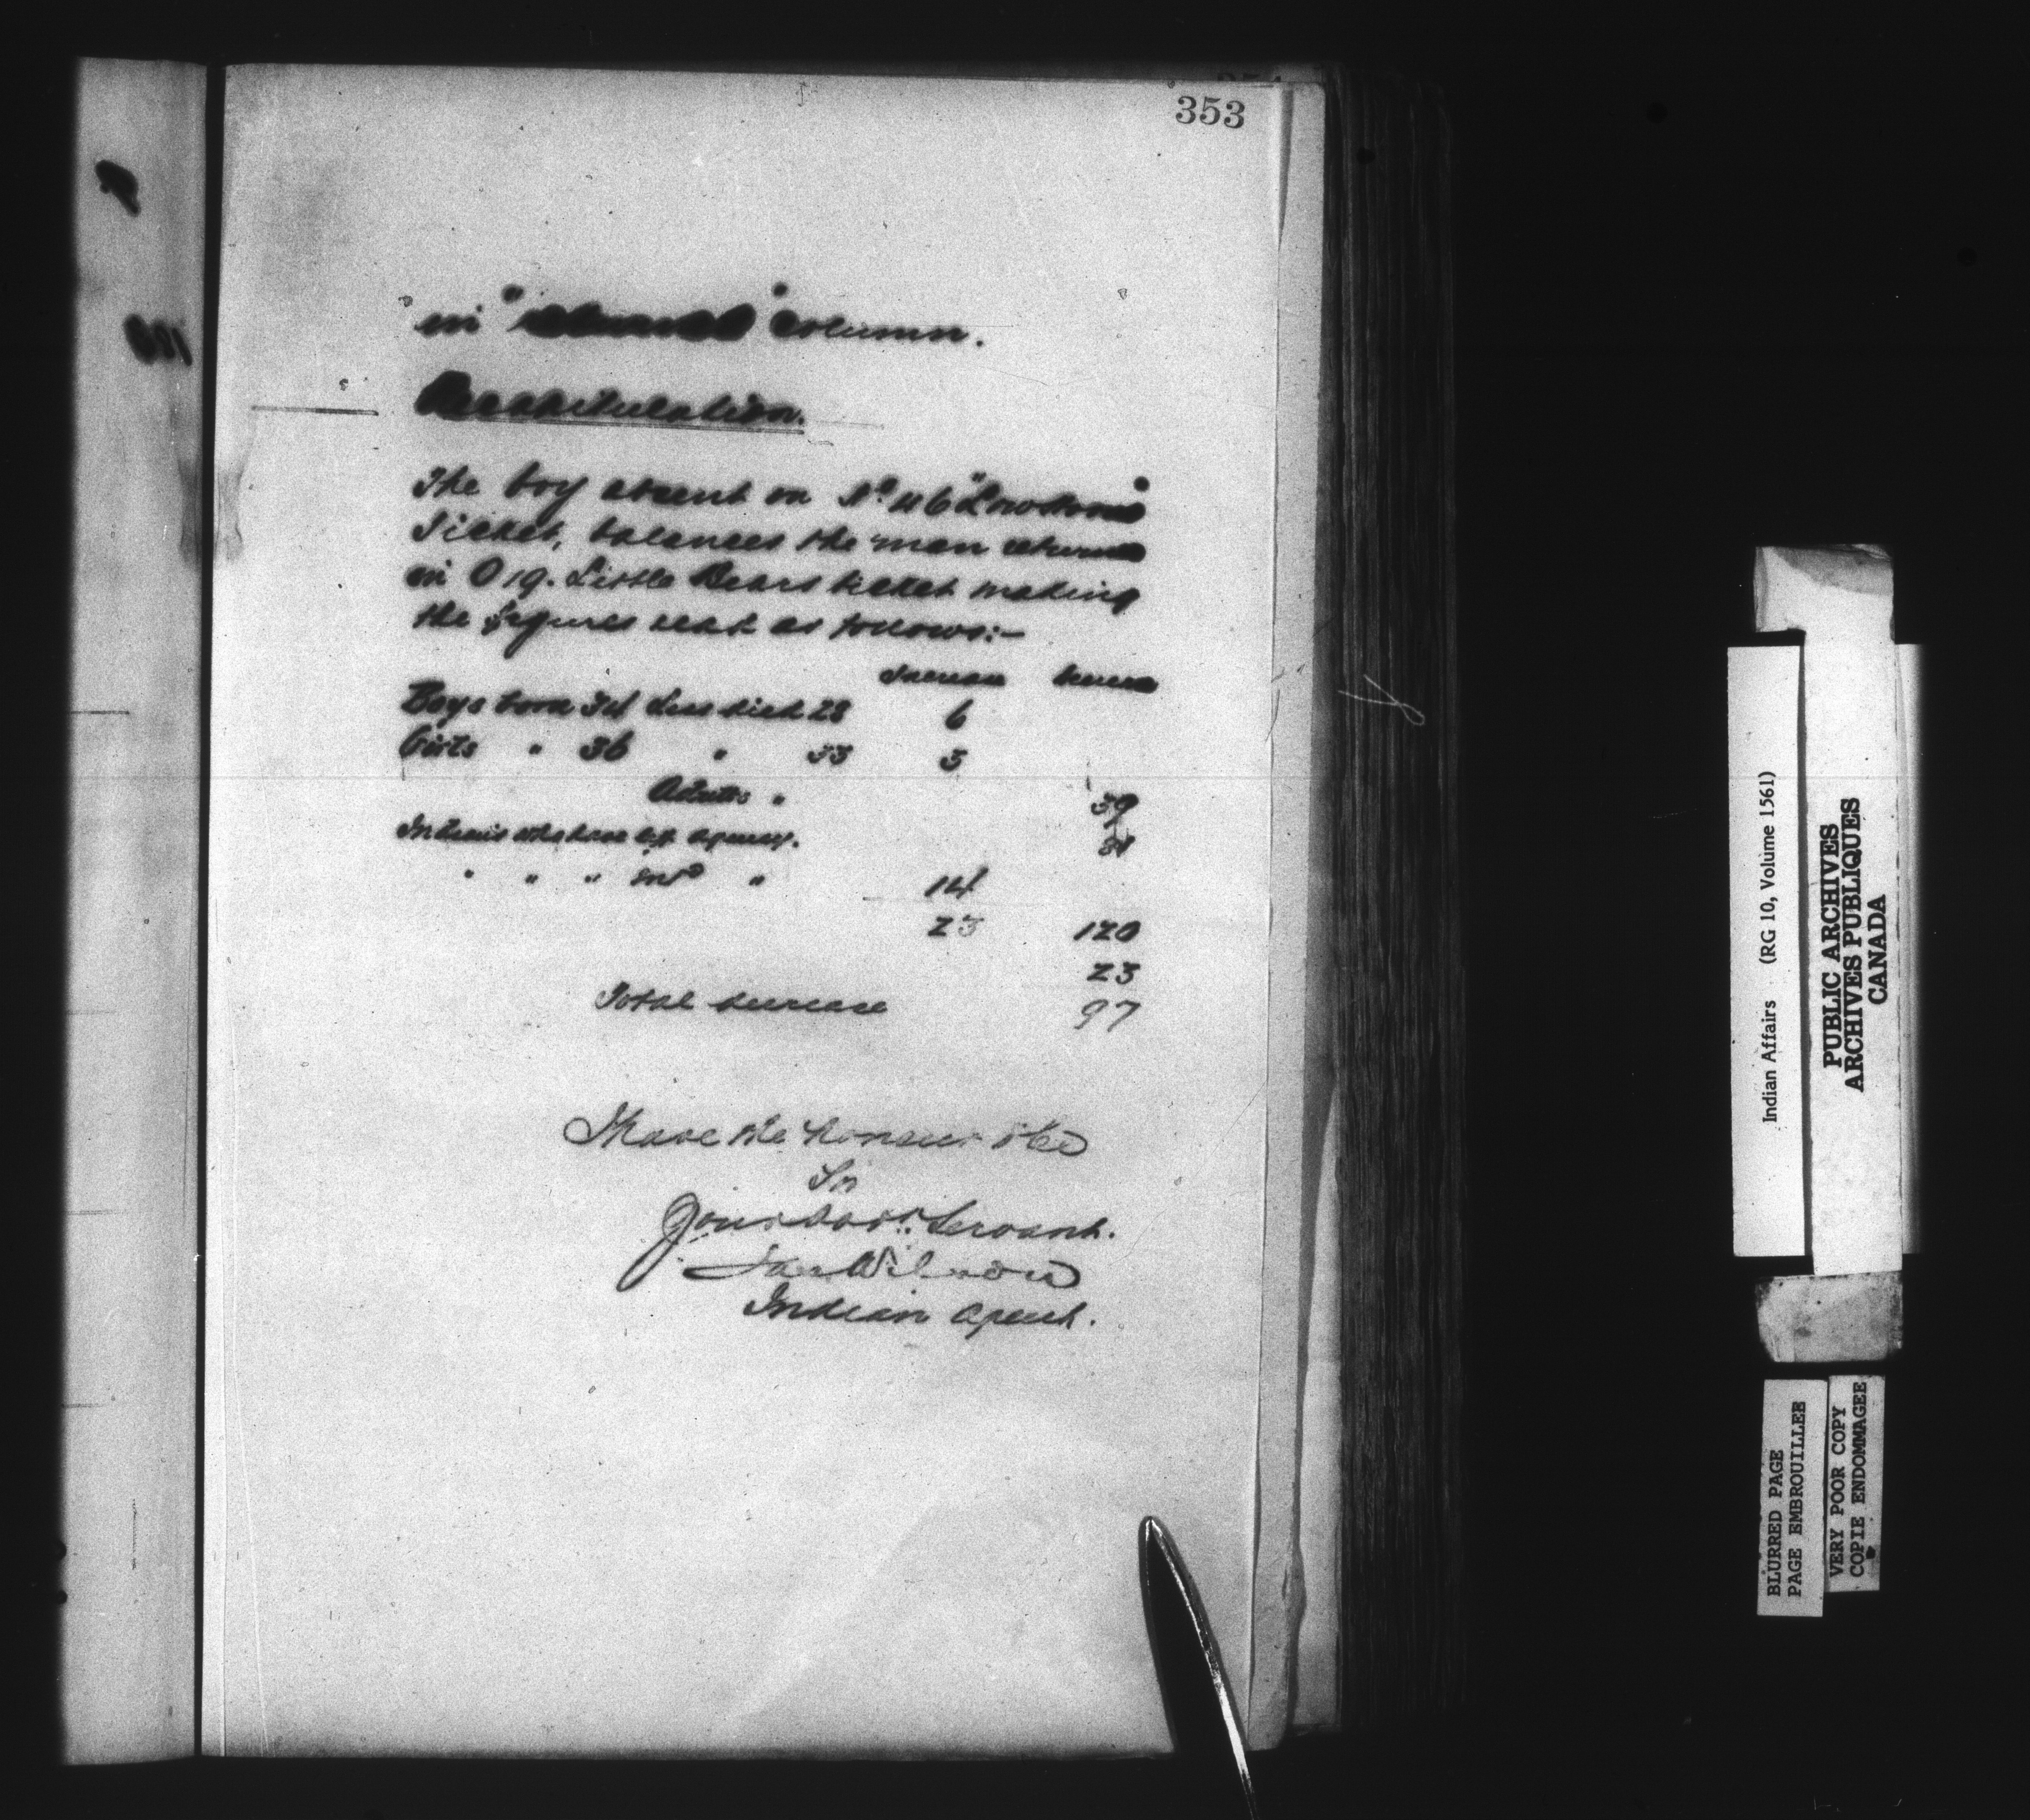 353
in "returned" column.
Recapitulation.
The boy absent on No 46
Ticket, balances the man returned
in O 19. Little Bears ticket making
the figures read as follows:-
Increase Decrease
Boys born 34 Less died 28 6
Girls " 36 " 33 3
Adults " 39
Indians who have left agency. 81
" " " into " 14
23 120
23
Total decrease 97
I have the honour to be
Sir
Your obdt. Servant.
Jas Wilson
Indian Agent.
Indian Affairs (RG 10, Volume 1561)
PUBLIC ARCHIVES
ARCHIVES PUBLIQUES
CANADA
BLURRED PAGE
PAGE EMBROUILLEE
VERY POOR COPY
COPIE ENDOMMAGEE